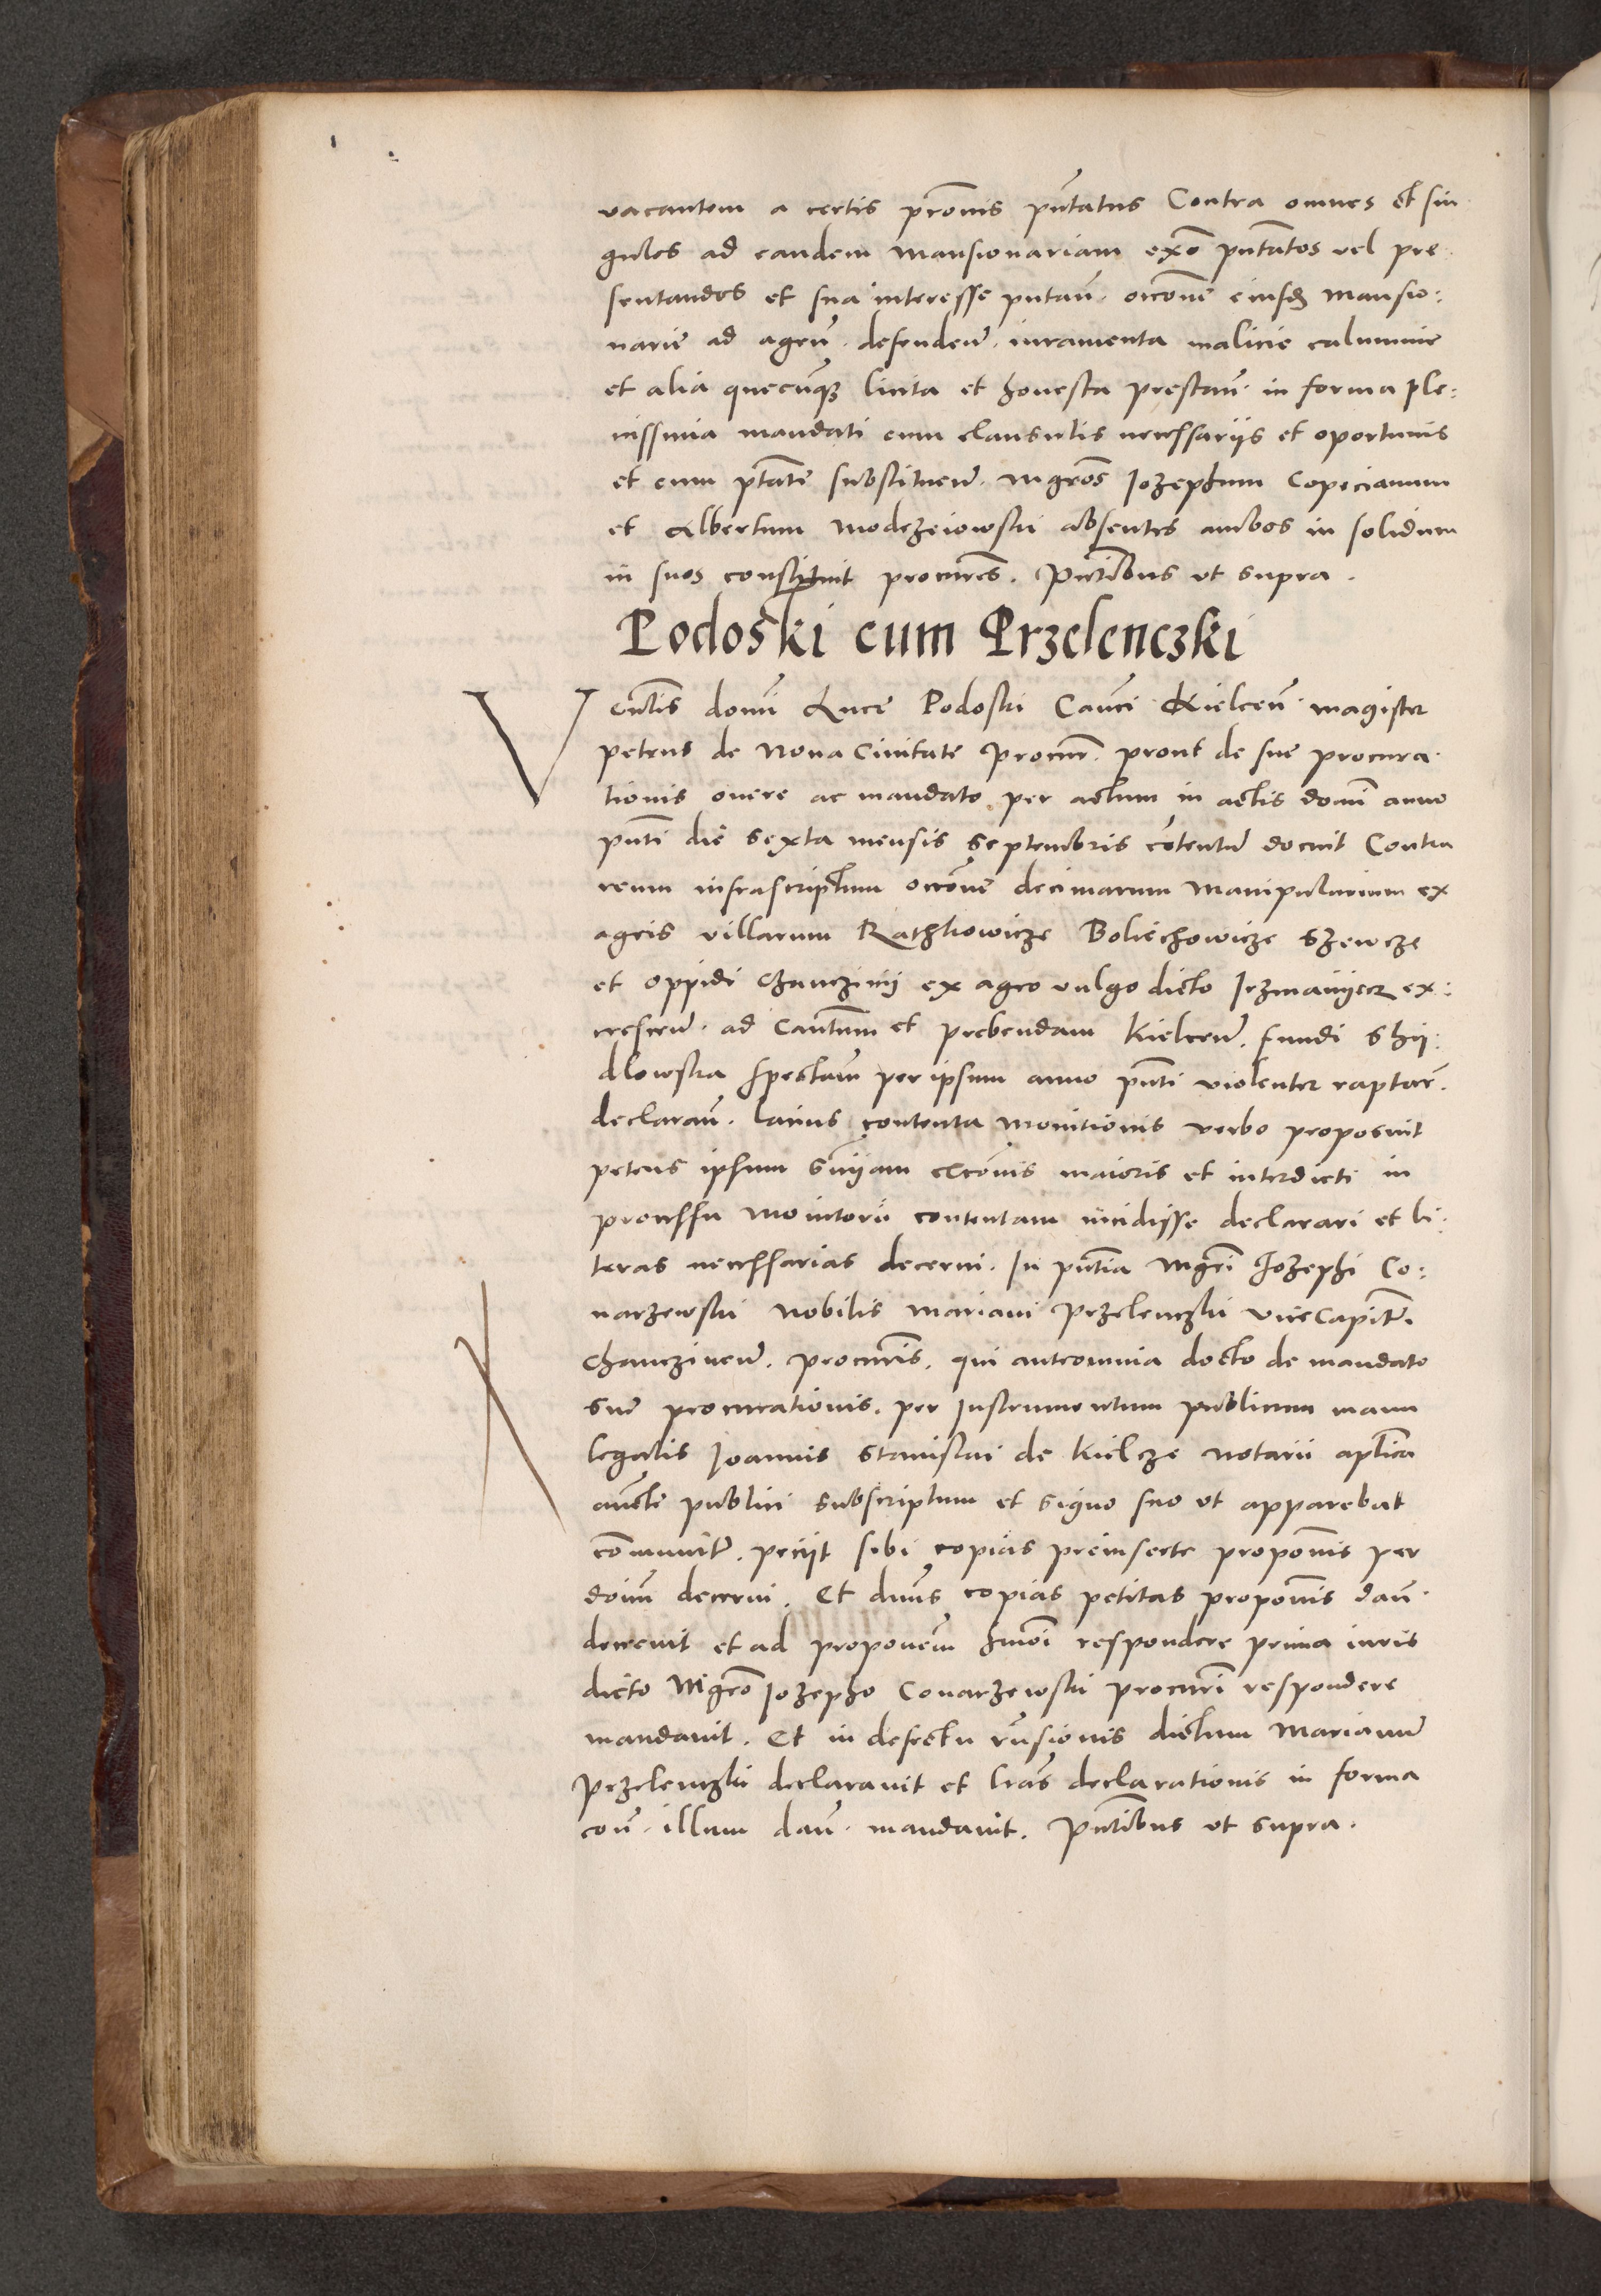 vacantem a certis pronis pntatus Contra omnes et sin
gulos ad eandem Mansionariam exo pntatos vel pre
sentandos et sua interesse putan. occone eiusd Mansio:
narie ad agen. defenden. iuramenta malicie calumnie
et alia quecunq licita et honesta prestan. in forma ple:
nissima mandati cum clausulis necessariis et oportunis
et cum ptate substituen. Mgros Iozephum Copicianum
et Albertum Modrzeiowski absentes ambos in solidum
in suos constituit procures. Pntibus ut supra.
Podoski cum Przelenczki
Venlis domi Luce Podoski Canci Kielcen. magister
petrus de Nova Civitate Procur. prout de sue procura
tionis onere ac mandato per actum in actis domi anno
pnti die Sexta mensis Septembris cotentum docuit Contra
reum infrascriptum occone decimarum Manipularium ex
agris villarum Rathkowicze Boliechowicze Szewcze
et oppidi Chanczinij ex agro vulgo dicto Irzmanijecz ex:
crescen. ad Cantum et prebendam Kielcen. fundi Shij:
dlowska spectan per ipsum anno pnti violenter raptar.
declaran. latius contenta Monitionis verbo proposuit
petens ipsum Snijam exconis maioris et interdicti in
processu Monitorii contentam incidisse declarari et li:
teras necessarias decerni. In pntia Mgri Iozephi Co:
narzewski Nobilis Mariani Przelenczki Vicecapitn.
Chanczinen. procuris. qui anteomnia docto de mandato
sue procurationis. per Instrumentum publicum manu
legalis Joannis Stanislai de Kielcze Notarii aplica
aucte publici subscriptum et signo suo ut apparebat
comunitu. peciit sibi copias preinserte proponis per
doim decerni. Et dnus copias petitas proponis dan.
decrevit et ad proponem hmoi respondere prima iuris
dicto Mgro Iozepho Conarzewski procuri respondere
mandavit. Et in defectu rnsionis dictum Marianum
Przelenczki declaravit et lras declarationis in forma
con. illum dan. mandavit. Pntibus ut supra.